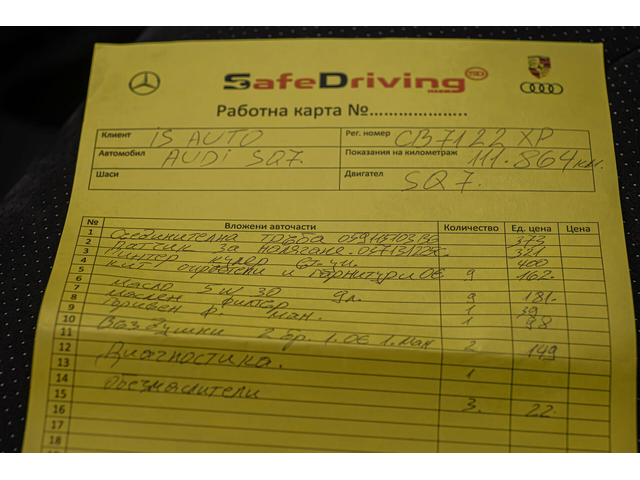 SafeDriving
Работна карта №..................
Клиент IS AUTO Рег. номер CB7122 XP
Автомобил AUDI SQ7. Показания на километраж 111.864км.
Шаси Двигател SQ7.
№ Вложени авточасти Количество Ед. цена Цена
1 Съединителна тръба 373
2 Датчик за налягане 321
3 400
4 кит и гарнитури ОЕ 9 162.
5
6 Масло 5w30 9л. 9 181.
7 Маслен филтер 1 39
8 Горивен ф. ман. 1 98
9
10 Въздушни 2 бр. 1.ОЕ 1.Ман 2 149
11
12 Диагностика. 1
13
14 Обезмаслители 3. 22
15
16
17
18